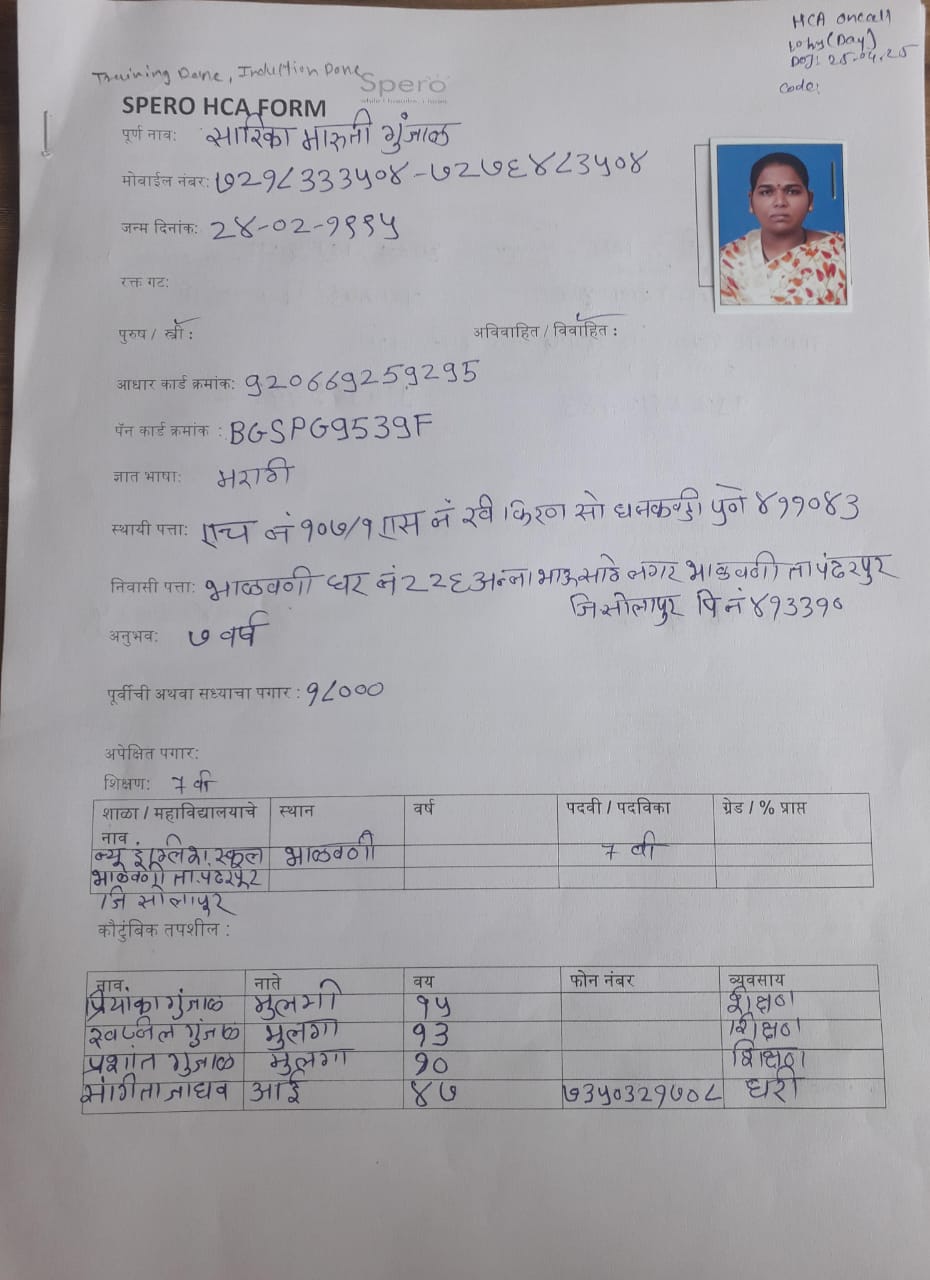 HCA oncall
10 hr (Day)
DOJ: 25.04.25
code:
Training Done, Induction Done
Spero
SPERO HCA FORM
पूर्ण नाव: सारिका मारुती गुंजाळ
मोबाईल नंबर: ७२९८३३३५०४-७२७६४८३५०४
जन्म दिनांक: २४-०२-१९९५
रक्त गट:
पुरुष / स्त्री : अविवाहित / विवाहित :
आधार कार्ड क्रमांक: ९२०६६९२५९२९५
पॅन कार्ड क्रमांक : BGSPG9539F
ज्ञात भाषा: मराठी
स्थायी पत्ता: एच नं १०७/१ एस नं रवी किरण सो धनकवडी पुणे ४११०४३
निवासी पत्ता: भाळवणी घर नं २२६ अन्नाभाऊ साठे नगर भाळवणी ता पंढरपुर
जि सोलापुर पि नं ४१३३१०
अनुभव: ७ वर्ष
पूर्वीची अथवा सध्याचा पगार : १८०००
अपेक्षित पगार:
शिक्षण: 7 वी
शाळा / महाविद्यालयाचे नाव स्थान वर्ष पदवी / पदविका ग्रेड / % प्राप्त
न्यू इंग्लिश स्कूल भाळवणी 7 वी
भाळवणी ता.पंढरपूर
जि सोलापूर
कौटुंबिक तपशील :
नाव. नाते वय फोन नंबर व्यवसाय
प्रियांका गुंजाळ मुलगी १५ शिक्षण
स्वप्नील गुंजाळ मुलगा १३ शिक्षण
प्रशांत गुंजाळ मुलगा १० शिक्षण
संगिता जाधव आई ४७ ७३५०३२१७०८ घरी